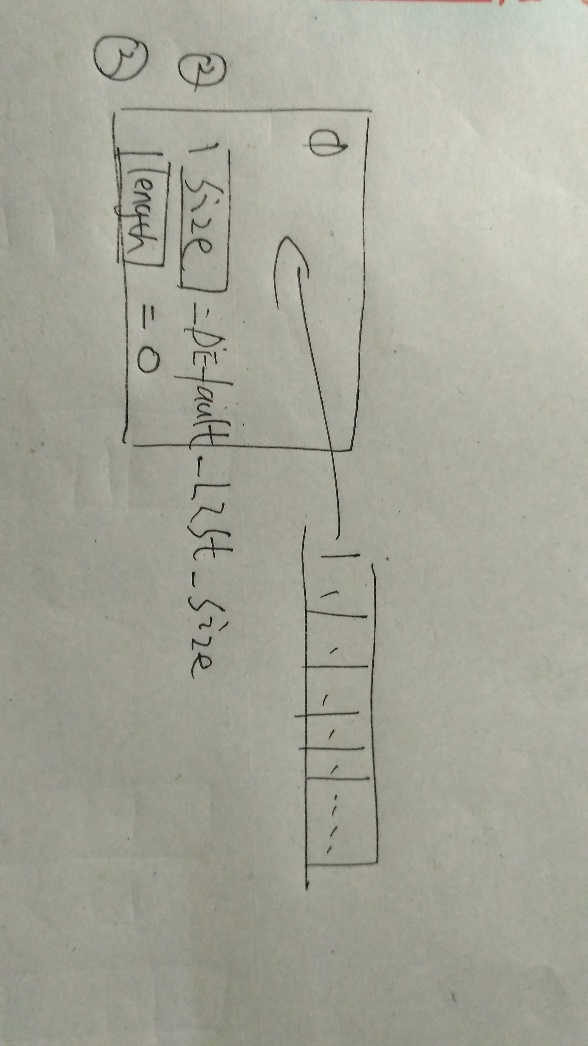 ①
② size = DEfault_LISt_size
③ length = 0